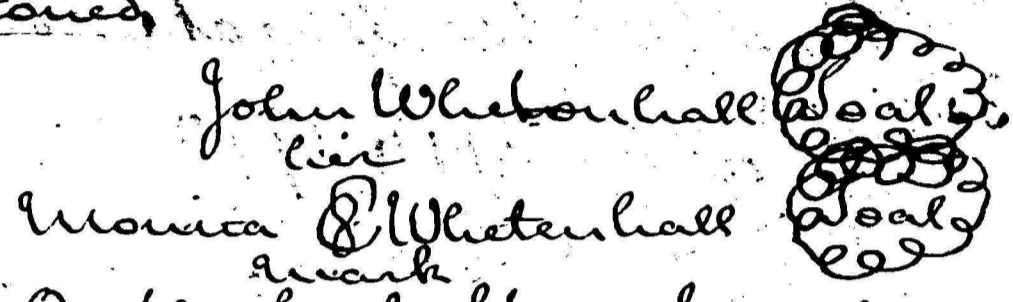 John Whetenhall Seal
her
Monica & Whetenhall Seal
mark